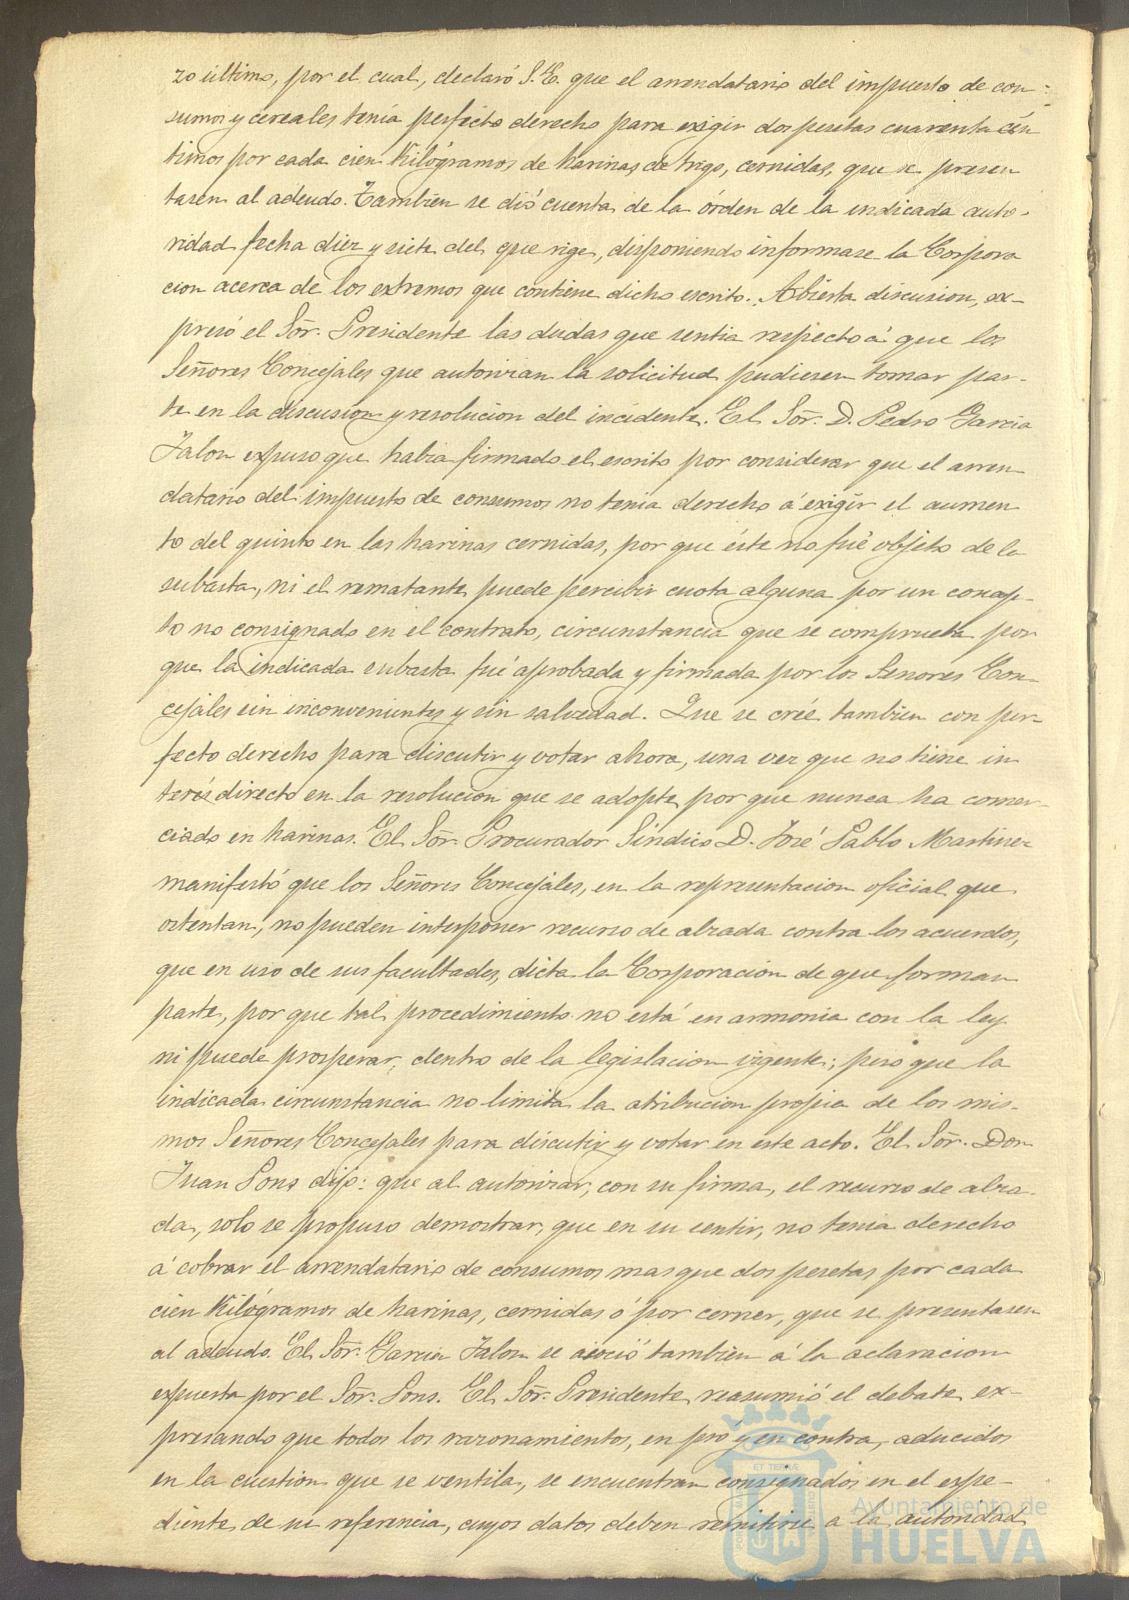 zo último, por el cual, declaró S. E. que el arrendatario del impuesto de con-
sumos y cereales tenía perfecto derecho para exigir dos pesetas cuarenta cén
timos por cada cien Kilógramos de harinas de trigo, cernidas, que se presen
tasen al adeudo. Tambien se dió cuenta de la órden de la indicada auto-
ridad fecha diez y siete del que rige, disponiendo informase la Corpora
cion acerca de los extremos que contiene dicho escrito. Abierta discusion, ex-
presó el Sõr. Presidente las dudas que sentia respecto á que los
Señores Concejales que autorizan la solicitud pudiesen tomar par-
te en la discusion y resolucion del incidente. El Sõr. D. Pedro Garcia
Jalon expuso que habia firmado el escrito por considerar que el arren
datario del impuesto de consumos no tenia derecho á exigir el aumen
to del quinto en las harinas cernidas, por que éste no fué objeto de la
subasta, ni el rematante puede percibir cuota alguna por un concep-
to no consignado en el contrato, circunstancia que se comprueba por
que la indicada subasta fué aprobada y firmada por los Señores Con-
cejales sin inconvenientes y sin salvedad. Que se crée tambien con per-
fecto derecho para discutir y votar ahora, una vez que no tiene in
terés directo en la resolucion que se adopte, por que nunca ha comer-
ciado en harinas. El Sõr. Procurador Síndico D. José Pablo Martinez
manifestó que los Señores Concejales, en la representacion oficial que
ostentan, no pueden interponer recurso de alzada contra los acuerdos,
que en uso de sus facultades, dicta la Corporacion de que forman
parte, por que tal procedimiento no está en armonia con la ley
ni puede prosperar, dentro de la legislacion vigente; pero que la
indicada circunstancia no limita la atribucion propia de los mis-
mos Señores Concejales para discutir y votar en este acto. El Sõr. Don
Juan Pons dijo: que al autorizar, con su firma, el recurso de alza-
da, solo se propuso demostrar, que en su sentir, no tenia derecho
á cobrar el arrendatario de consumos mas que dos pesetas por cada
cien Kilógramos de harinas, cernidas ó por cerner, que se presentasen
al adeudo. El Sõr. Garcia Jalon se asoció tambien á la aclaracion
expuesta por el Sõr. Pons. El Sõr. Presidente reasumió el debate, ex-
presando que todos los razonamientos, en pró y en contra, aducidos
en la cuestion que se ventila, se encuentran consignados en el expe-
diente de su referencia, cuyos datos deben remitirse a la autoridad
Ayuntamiento de
HUELVA